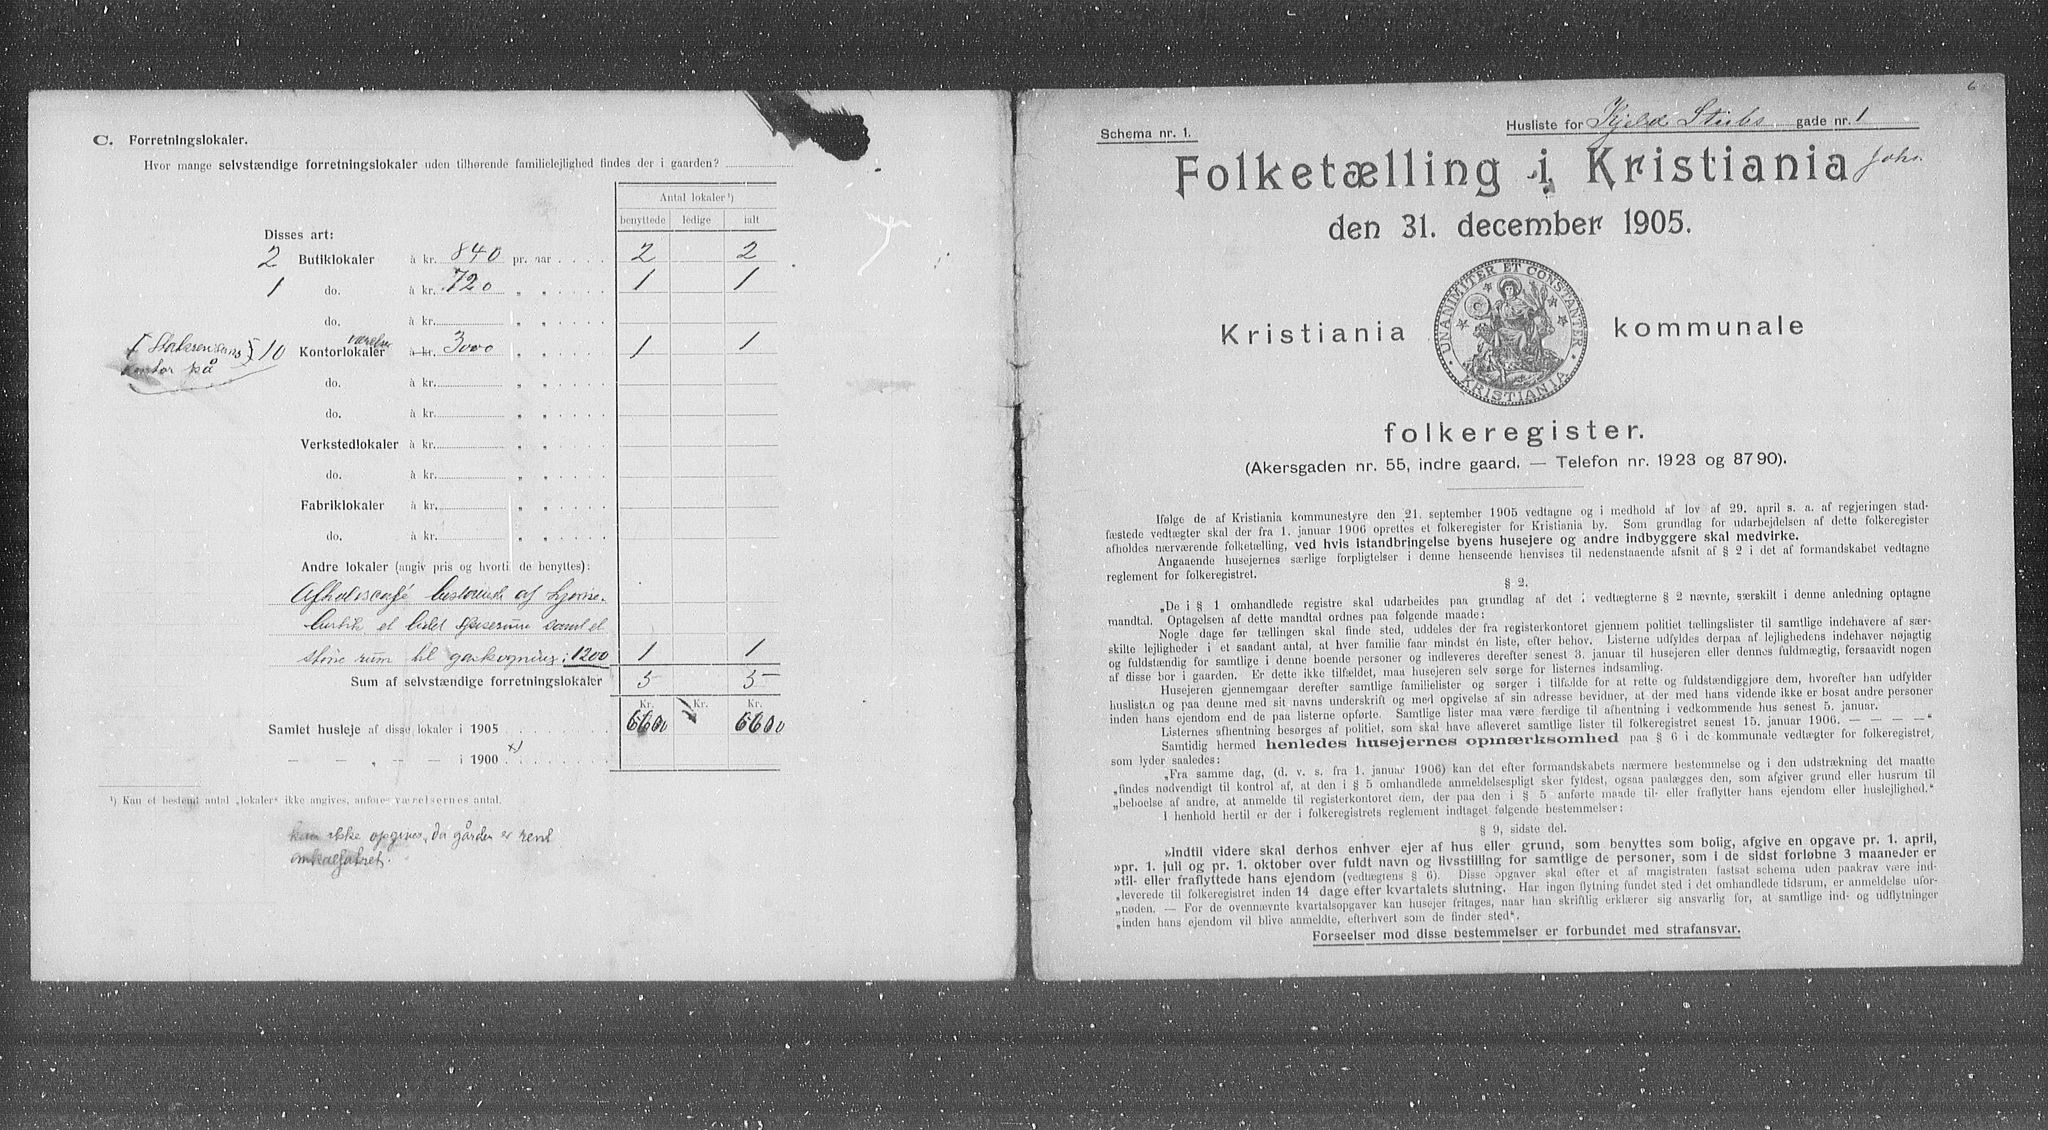 C. Forretningslokaler.
Hvor mange selvstændige forretningslokaler uden tilhørende familielejlighed findes der i gaarden?
Antal lokaler ¹)
benyttede ledige ialt
Disses art:
2 Butiklokaler à kr. 840 pr. aar 2 2
1 do. à kr. 720 „ „ 1 1
do. à kr. „ „
værelser
kontor på 10 Kontorlokaler à kr. 3000 „ „ 1 1
do. à kr. „ „
do. à kr. „ „
Verkstedlokaler à kr. „ „
do. à kr. „ „
Fabriklokaler à kr. „ „
do. à kr. „ „
Andre lokaler (angiv pris og hvorti de benyttes):
Afholdscafé bestående af hjørne-
butik et lidet spiserum samt et
større rum til gaskogning; 1200 1 1
Sum af selvstændige forretningslokaler 5 5
Kr. Kr. Kr.
Samlet husleje af disse lokaler i 1905 6600 6600
— — „ — — i 1900 x)
¹) Kan et bestemt antal „lokaler“ ikke angives, anføres værelsernes antal.
kan ikke opgives, da gården er rent
omkalfatret.
6
Schema nr. 1.
Husliste for Kjeld Stubs gade nr. 1
Joh.
Folketælling i Kristiania
den 31. december 1905.
UNANIMITER ET CONSTANTER
KRISTIANIA
Kristiania kommunale
folkeregister.
(Akersgaden nr. 55, indre gaard. — Telefon nr. 1923 og 8790).
Ifølge de af Kristiania kommunestyre den 21. september 1905 vedtagne og i medhold af lov af 29. april s. a. af regjeringen stad-
fæstede vedtægter skal der fra 1. januar 1906 oprettes et folkeregister for Kristiania by. Som grundlag for udarbejdelsen af dette folkeregister
afholdes nærværende folketælling, ved hvis istandbringelse byens husejere og andre indbyggere skal medvirke.
Angaaende husejernes særlige forpligtelser i denne henseende henvises til nedenstaaende afsnit af § 2 i det af formandskabet vedtagne
reglement for folkeregistret.
§ 2.
„De i § 1 omhandlede registre skal udarbeides paa grundlag af det i vedtægterne § 2 nævnte, særskilt i denne anledning optagne
mandtal. Optagelsen af dette mandtal ordnes paa følgende maade:
Nogle dage før tællingen skal finde sted, uddeles der fra registerkontoret gjennem politiet tællingslister til samtlige indehavere af sær-
skilte lejligheder i et saadant antal, at hver familie faar mindst én liste, efter behov. Listerne udfyldes derpaa af lejlighedens indehaver nøjagtig
og fuldstændig for samtlige i denne boende personer og indleveres derefter senest 3. januar til husejeren eller dennes fuldmægtig, forsaavidt nogen
af disse bor i gaarden. Er dette ikke tilfældet, maa husejeren selv sørge for listernes indsamling.
Husejeren gjennemgaar derefter samtlige familielister og sørger i tilfælde for at rette og fuldstændiggjøre dem, hvorefter han udfylder
huslisten og paa denne med sit navns underskrift og med opgivelse af sin adresse bevidner, at der med hans vidende ikke er bosat andre personer
inden hans ejendom end de paa listerne opførte. Samtlige lister maa være færdige til afhentning i vedkommende hus senest 5. januar.
Listernes afhentning besørges af politiet, som skal have afleveret samtlige lister til folkeregistret senest 15. januar 1906. — — — —“
Samtidig hermed henledes husejernes opmærksomhed paa § 6 i de kommunale vedtægter for folkeregistret,
som lyder saaledes:
„Fra samme dag, (d. v. s. fra 1. januar 1906) kan det efter formandskabets nærmere bestemmelse og i den udstrækning det maatte
„findes nødvendigt til kontrol af, at den i § 5 omhandlede anmeldelsespligt sker fyldest, ogsaa paalægges den, som afgiver grund eller husrum til
„beboelse af andre, at anmelde til registerkontoret dem, der paa den i § 5 anførte maade til- eller fraflytter hans ejendom eller huslejlighed.“
I henhold hertil er der i folkeregistrets reglement indtaget følgende bestemmelser:
§ 9, sidste del.
»Indtil videre skal derhos enhver ejer af hus eller grund, som benyttes som bolig, afgive en opgave pr. 1. april,
»pr. 1. juli og pr. 1. oktober over fuldt navn og livsstilling for samtlige de personer, som i de sidst forløbne 3 maaneder er
»til- eller fraflyttede hans ejendom (vedtægtens § 6). Disse opgaver skal efter et af magistraten fastsat schema uden paakrav være ind-
„leverede til folkeregistret inden 14 dage efter kvartalets slutning. Har ingen flytning fundet sted i det omhandlede tidsrum, er anmeldelse ufor-
„nøden. — For de ovennævnte kvartalsopgaver kan husejer fritages, naar han skriftlig erklærer sig ansvarlig for, at samtlige ind- og udflytninger
„inden hans ejendom vil blive anmeldte, efterhvert som de finder sted“.
Forseelser mod disse bestemmelser er forbundet med strafansvar.